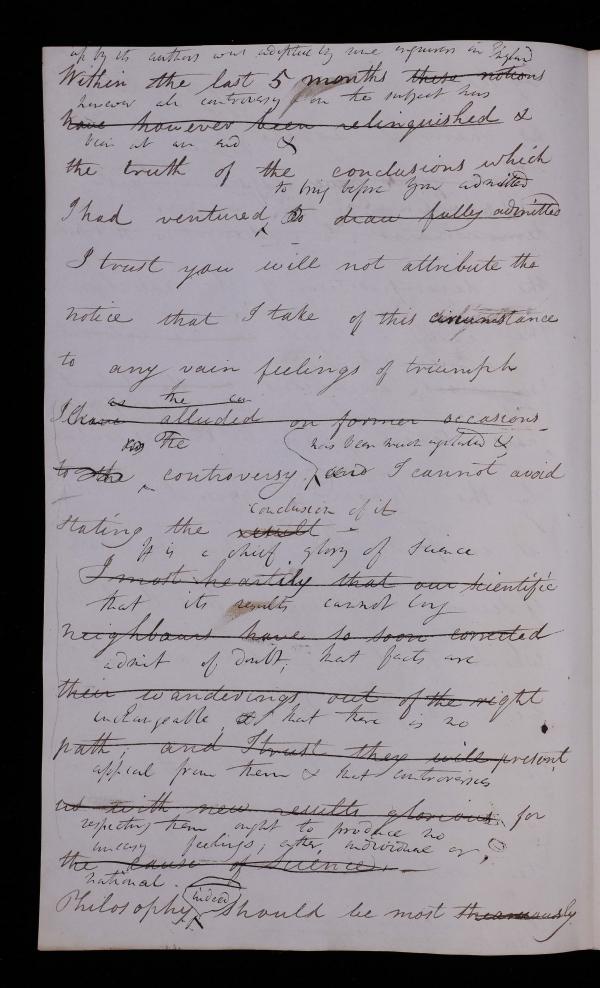 up by its authors was adopted by some engravers in England
Within the last 5 months these notions
however all controversy on the subject has
have however been relinquished &
been at an end &
the truth of the conclusions which
to bring before you admitted
I had ventured to draw fully admitted
I trust you will not attribute the
notice that I take of this circumstance
to any vain feelings of triumph
as the co
I have alluded on former occasions
The has been much agitated &
to the controversy and I cannot avoid
conclusion of it
stating the result
It is a chief glory of Science
I most heartily that our scientific
that its results cannot long
neighbours have so soon corrected
admit of doubt; that facts are
their wanderings out of the right
unchangeable & that there is no
path; and I trust they will present
appeal from them & that controversies
us with new results glorious for
respecting them ought to produce no
uneasy feelings, either individual or
the cause of science.
national.
indeed
Philosophy should be most